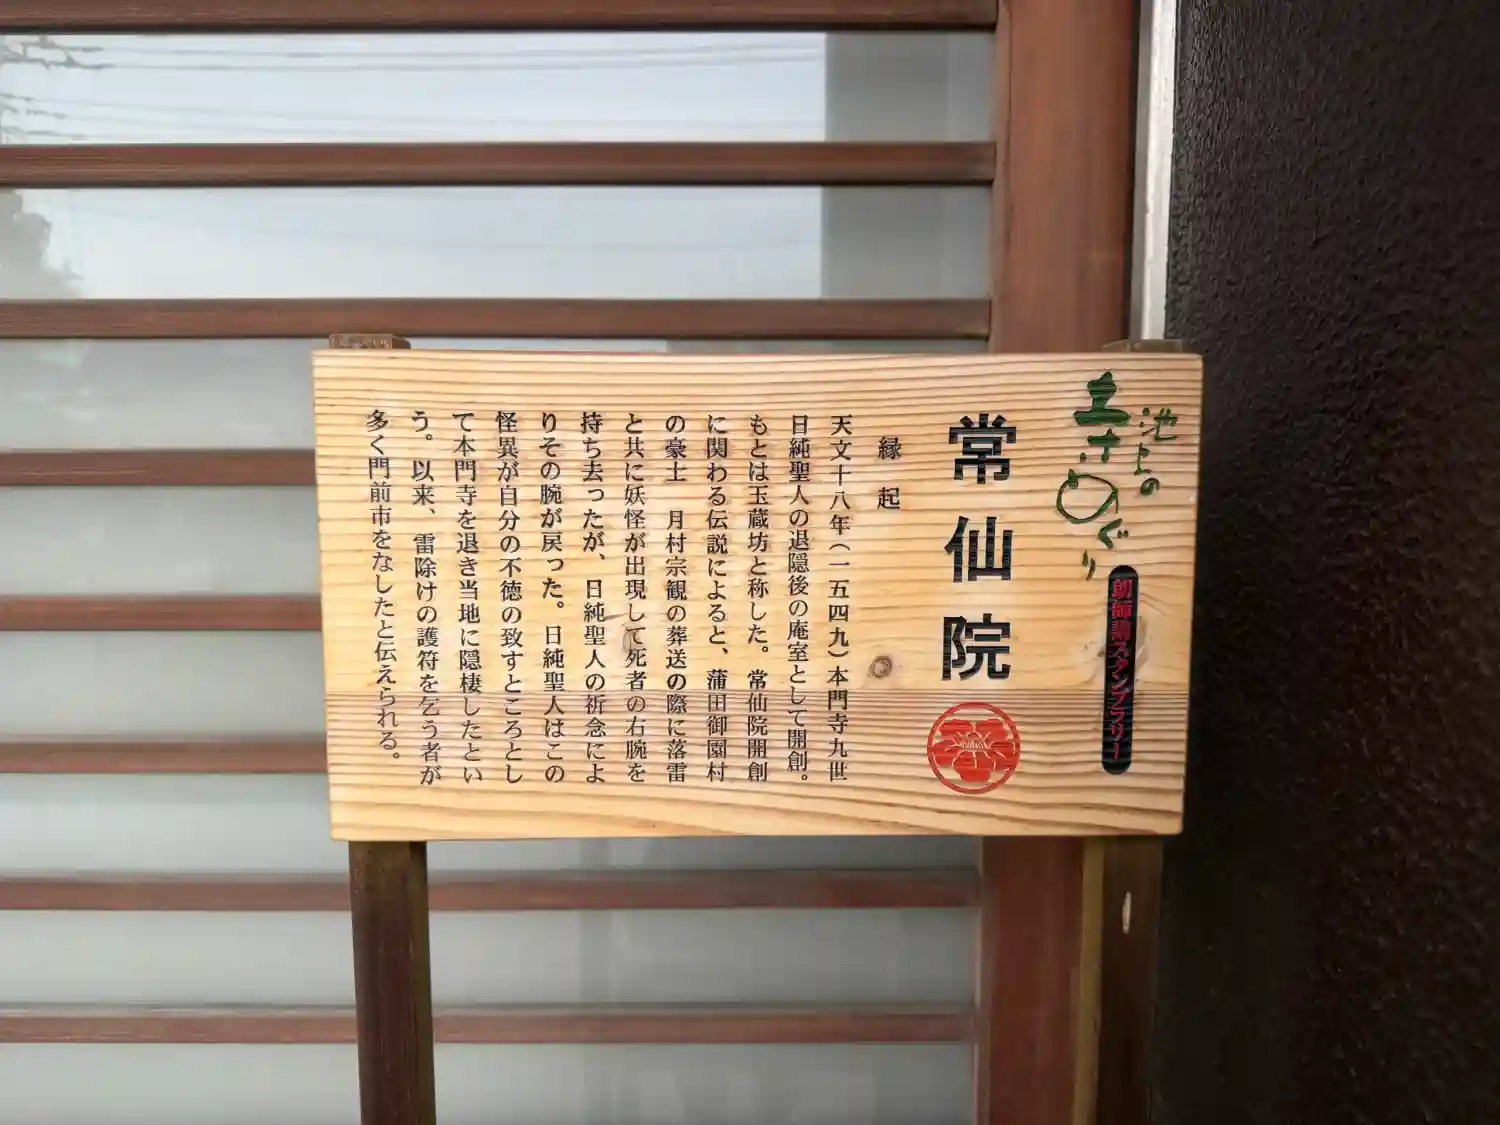 池上の
まちめぐり
御朱印スタンプラリー
常仙院
縁起
天文十八年(一五四九)本門寺九世
日純聖人の退隠後の庵室として開創。
もとは玉蔵坊と称した。常仙院開創
に関わる伝説によると、蒲田御園村
の豪士 月村宗観の葬送の際に落雷
と共に妖怪が出現して死者の右腕を
持ち去ったが、日純聖人の祈念によ
りその腕が戻った。日純聖人はこの
怪異が自分の不徳の致すところとし
て本門寺を退き当地に隠棲したとい
う。以来、雷除けの護符を乞う者が
多く門前市をなしたと伝えられる。